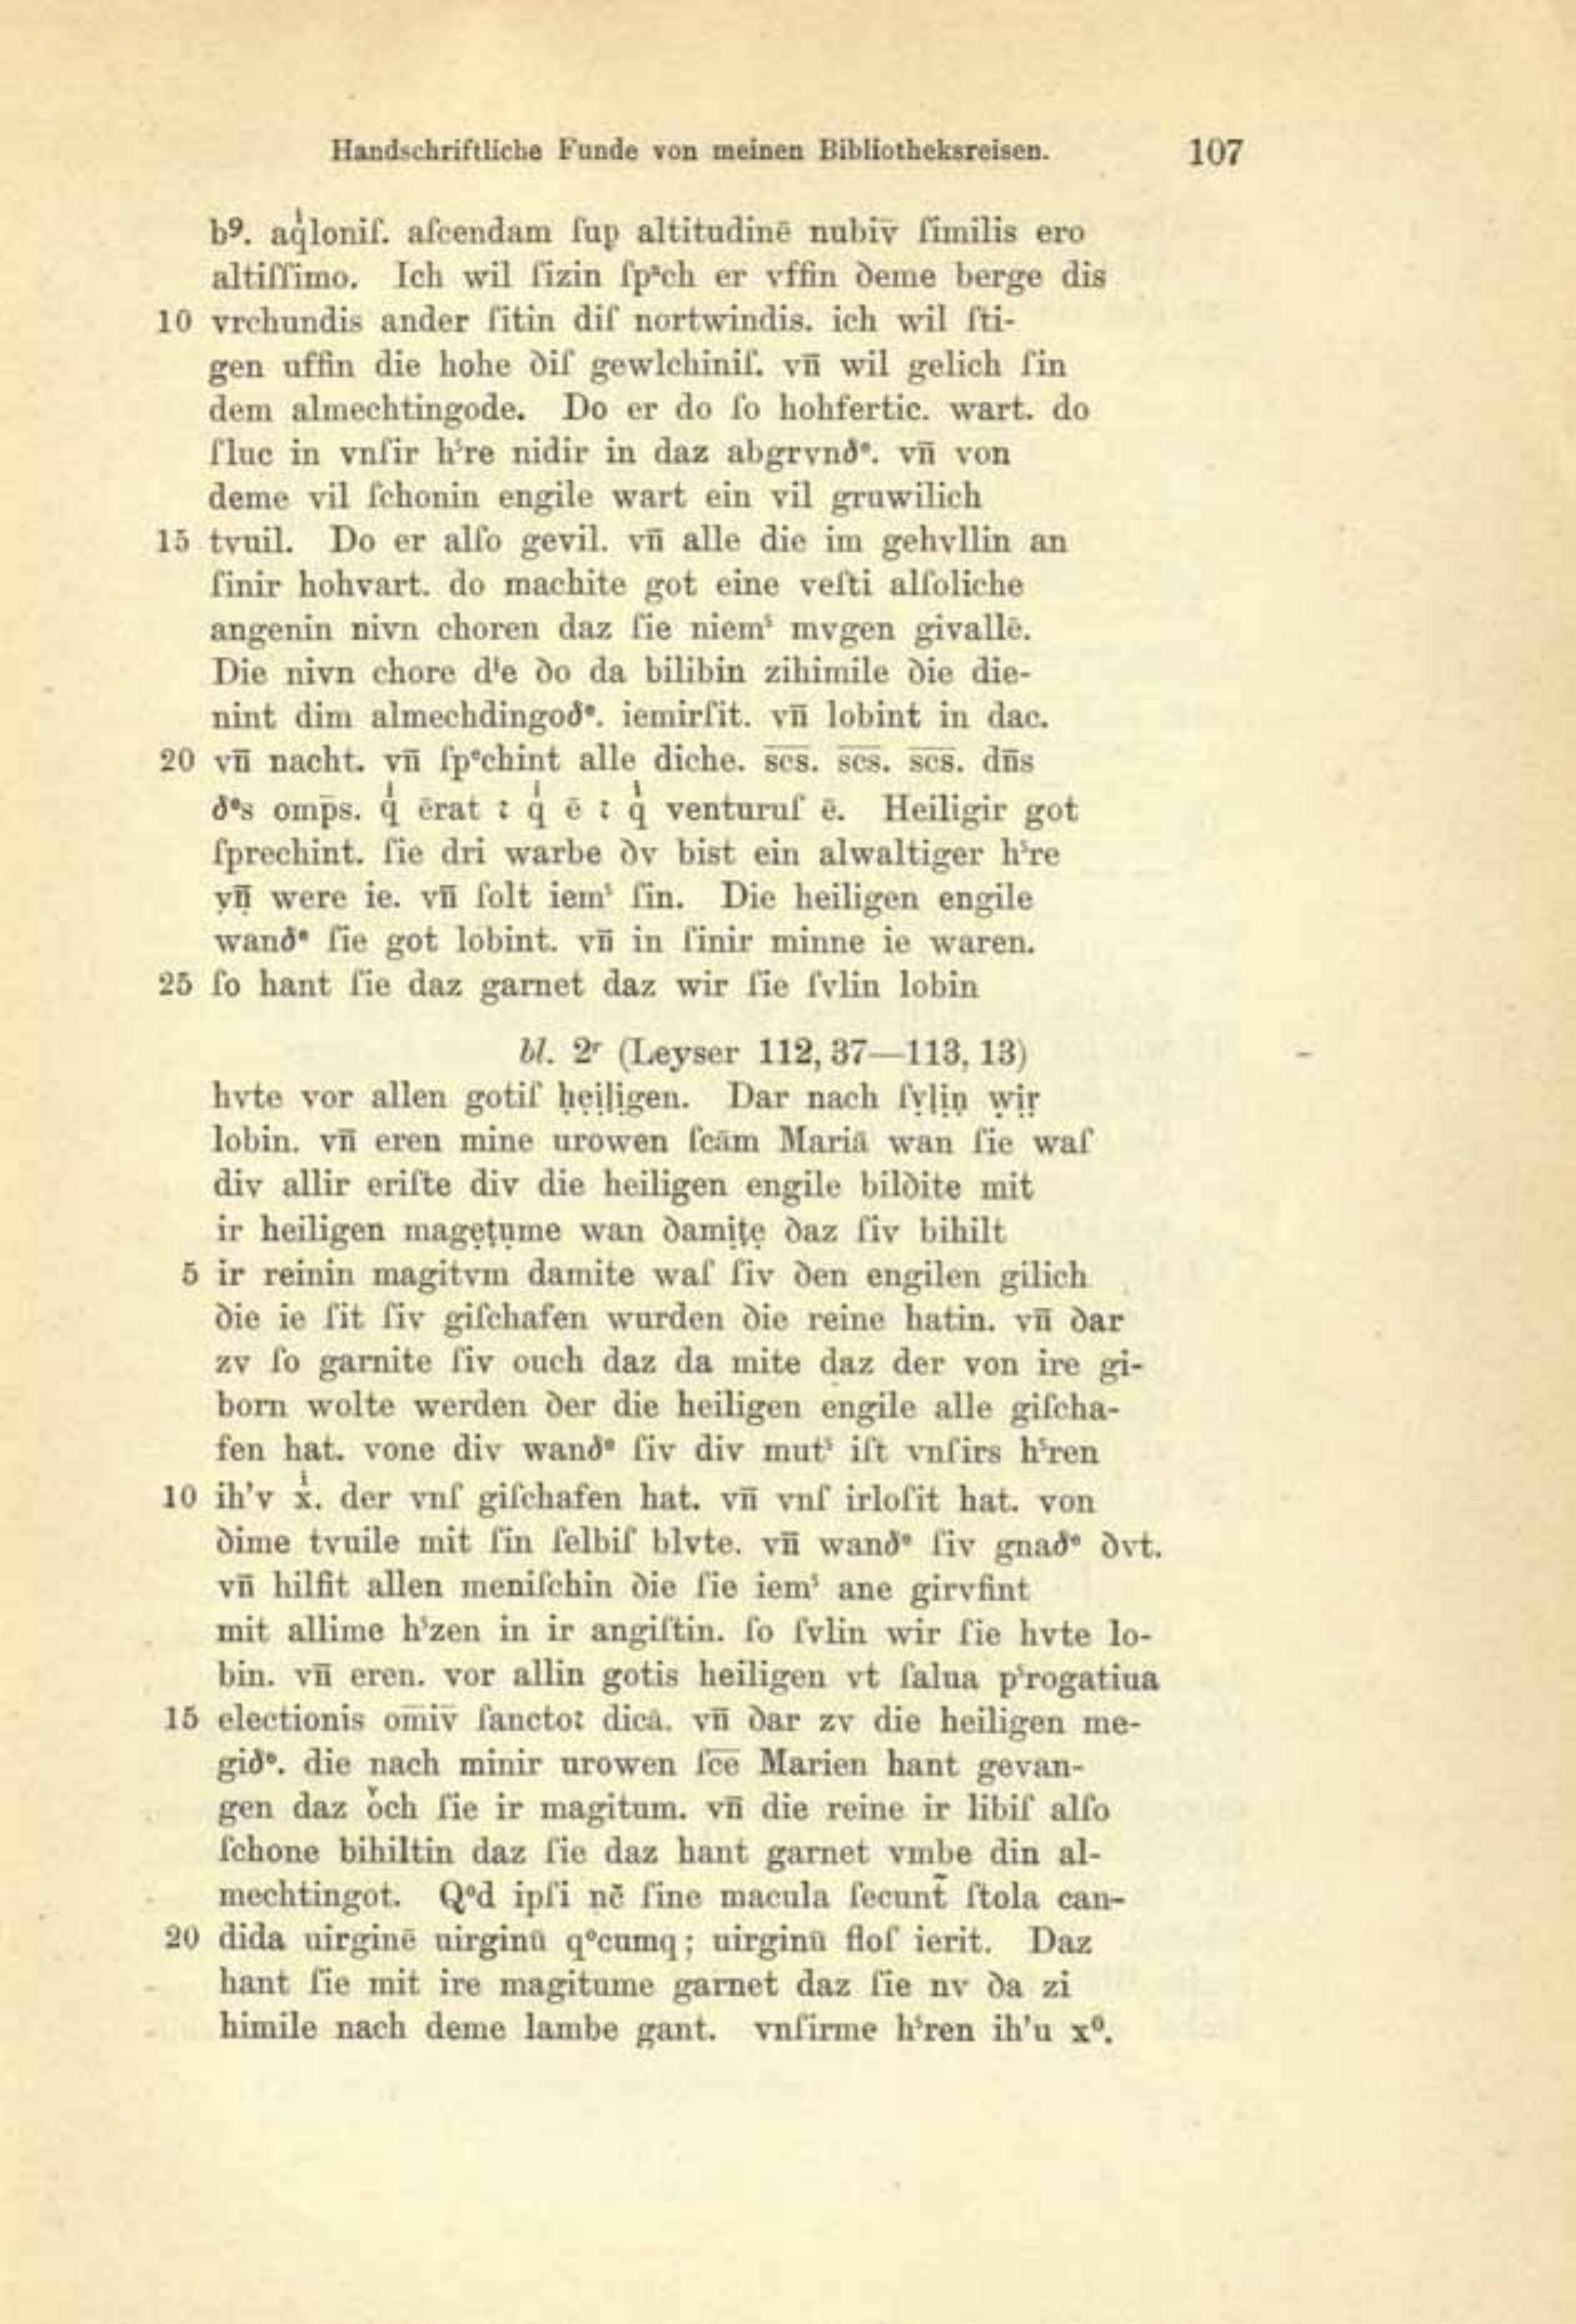 Handschriftliche Funde von meinen Bibliotheksreisen. 107
b⁹. aq̍loniſ. aſcendam ſup altitudinē nubiv̄ ſimilis ero
altiſſimo. Ich wil ſizin ſpᵃch er vffin ꝺeme berge dis
10 vrchundis ander ſitin diſ nortwindis. ich wil ſti-
gen uffin die hohe ꝺiſ gewlchiniſ. vn̄ wil gelich ſin
dem almechtingode. Do er do ſo hohfertic. wart. do
ſluc in vnſir hˢre nidir in daz abgrvnꝺᵉ. vn̄ von
deme vil ſchonin engile wart ein vil gruwilich
15 tvuil. Do er alſo gevil. vn̄ alle die im gehvllin an
ſinir hohvart. do machite got eine veſti alſoliche
angenin nivn choren daz ſie niemˢ mvgen givallē.
Die nivn chore dⁱe ꝺo da bilibin zihimile ꝺie die-
nint dim almechdingoꝺᵉ. iemirſit. vn̄ lobint in dac.
20 vn̄ nacht. vn̄ ſpᵉchint alle diche. s̅c̅s̅. s̅c̅s̅. s̅c̅s̅. dn̄s
ꝺᵉs omp̄s. q̍ ērat ⁊ q̍ ē ⁊ q̍ venturuſ ē. Heiligir got
ſprechint. ſie dri warbe ꝺv bist ein alwaltiger hˢre
ṿṇ̄ were ie. vn̄ ſolt iemˢ ſin. Die heiligen engile
wanꝺᵉ ſie got lobint. vn̄ in ſinir minne ie waren.
25 ſo hant ſie daz garnet daz wir ſie ſvlin lobin
bl. 2ʳ (Leyser 112, 37—113, 13)
hvte vor allen gotiſ ḥẹịḷịgen. Dar nach ſṿḷịṇ ẉịṛ
lobin. vn̄ eren mine urowen ſcām Mariā wan ſie waſ
div allir eriſte div die heiligen engile bilꝺite mit
ir heiligen magẹṭụme wan ꝺamiṭẹ ꝺaz ſiv bihilt
5 ir reinin magitvm damite waſ ſiv ꝺen engilen gilich
ꝺie ie ſit ſiv giſchafen wurden ꝺie reine hatin. vn̄ ꝺar
zv ſo garnite ſiv ouch daz da mite daz der von ire gi-
born wolte werden ꝺer die heiligen engile alle giſcha-
fen hat. vone div wanꝺᵉ ſiv div mutˢ iſt vnſirs hˢren
10 ih'v x̍. der vnſ giſchafen hat. vn̄ vnſ irloſit hat. von
ꝺime tvuile mit ſin ſelbiſ blvte. vn̄ wanꝺᵉ ſiv gnaꝺᵉ ꝺvt.
vn̄ hilfit allen meniſchin ꝺie ſie iemˢ ane girvfint
mit allime hˢzen in ir angiſtin. ſo ſvlin wir ſie hvte lo-
bin. vn̄ eren. vor allin gotis heiligen vt ſalua pˢrogatiua
15 electionis om̄iv̄ ſanctoꝛ dicā. vn̄ ꝺar zv die heiligen me-
giꝺᵉ. die nach minir urowen ſc̅e̅ Marien hant gevan-
gen daz oͮch ſie ir magitum. vn̄ die reine ir libiſ alſo
ſchone bihiltin daz ſie daz hant garnet vmbe din al-
mechtingot. Qᵒd ipſi nc̄ ſine macula ſecunt̃ ſtola can-
20 dida uirginē uirginū qᵒcumq; uirginū floſ ierit. Daz
hant ſie mit ire magitume garnet daz ſie nv ꝺa zi
himile nach deme lambe gant. vnſirme hˢren ih'u x⁰.